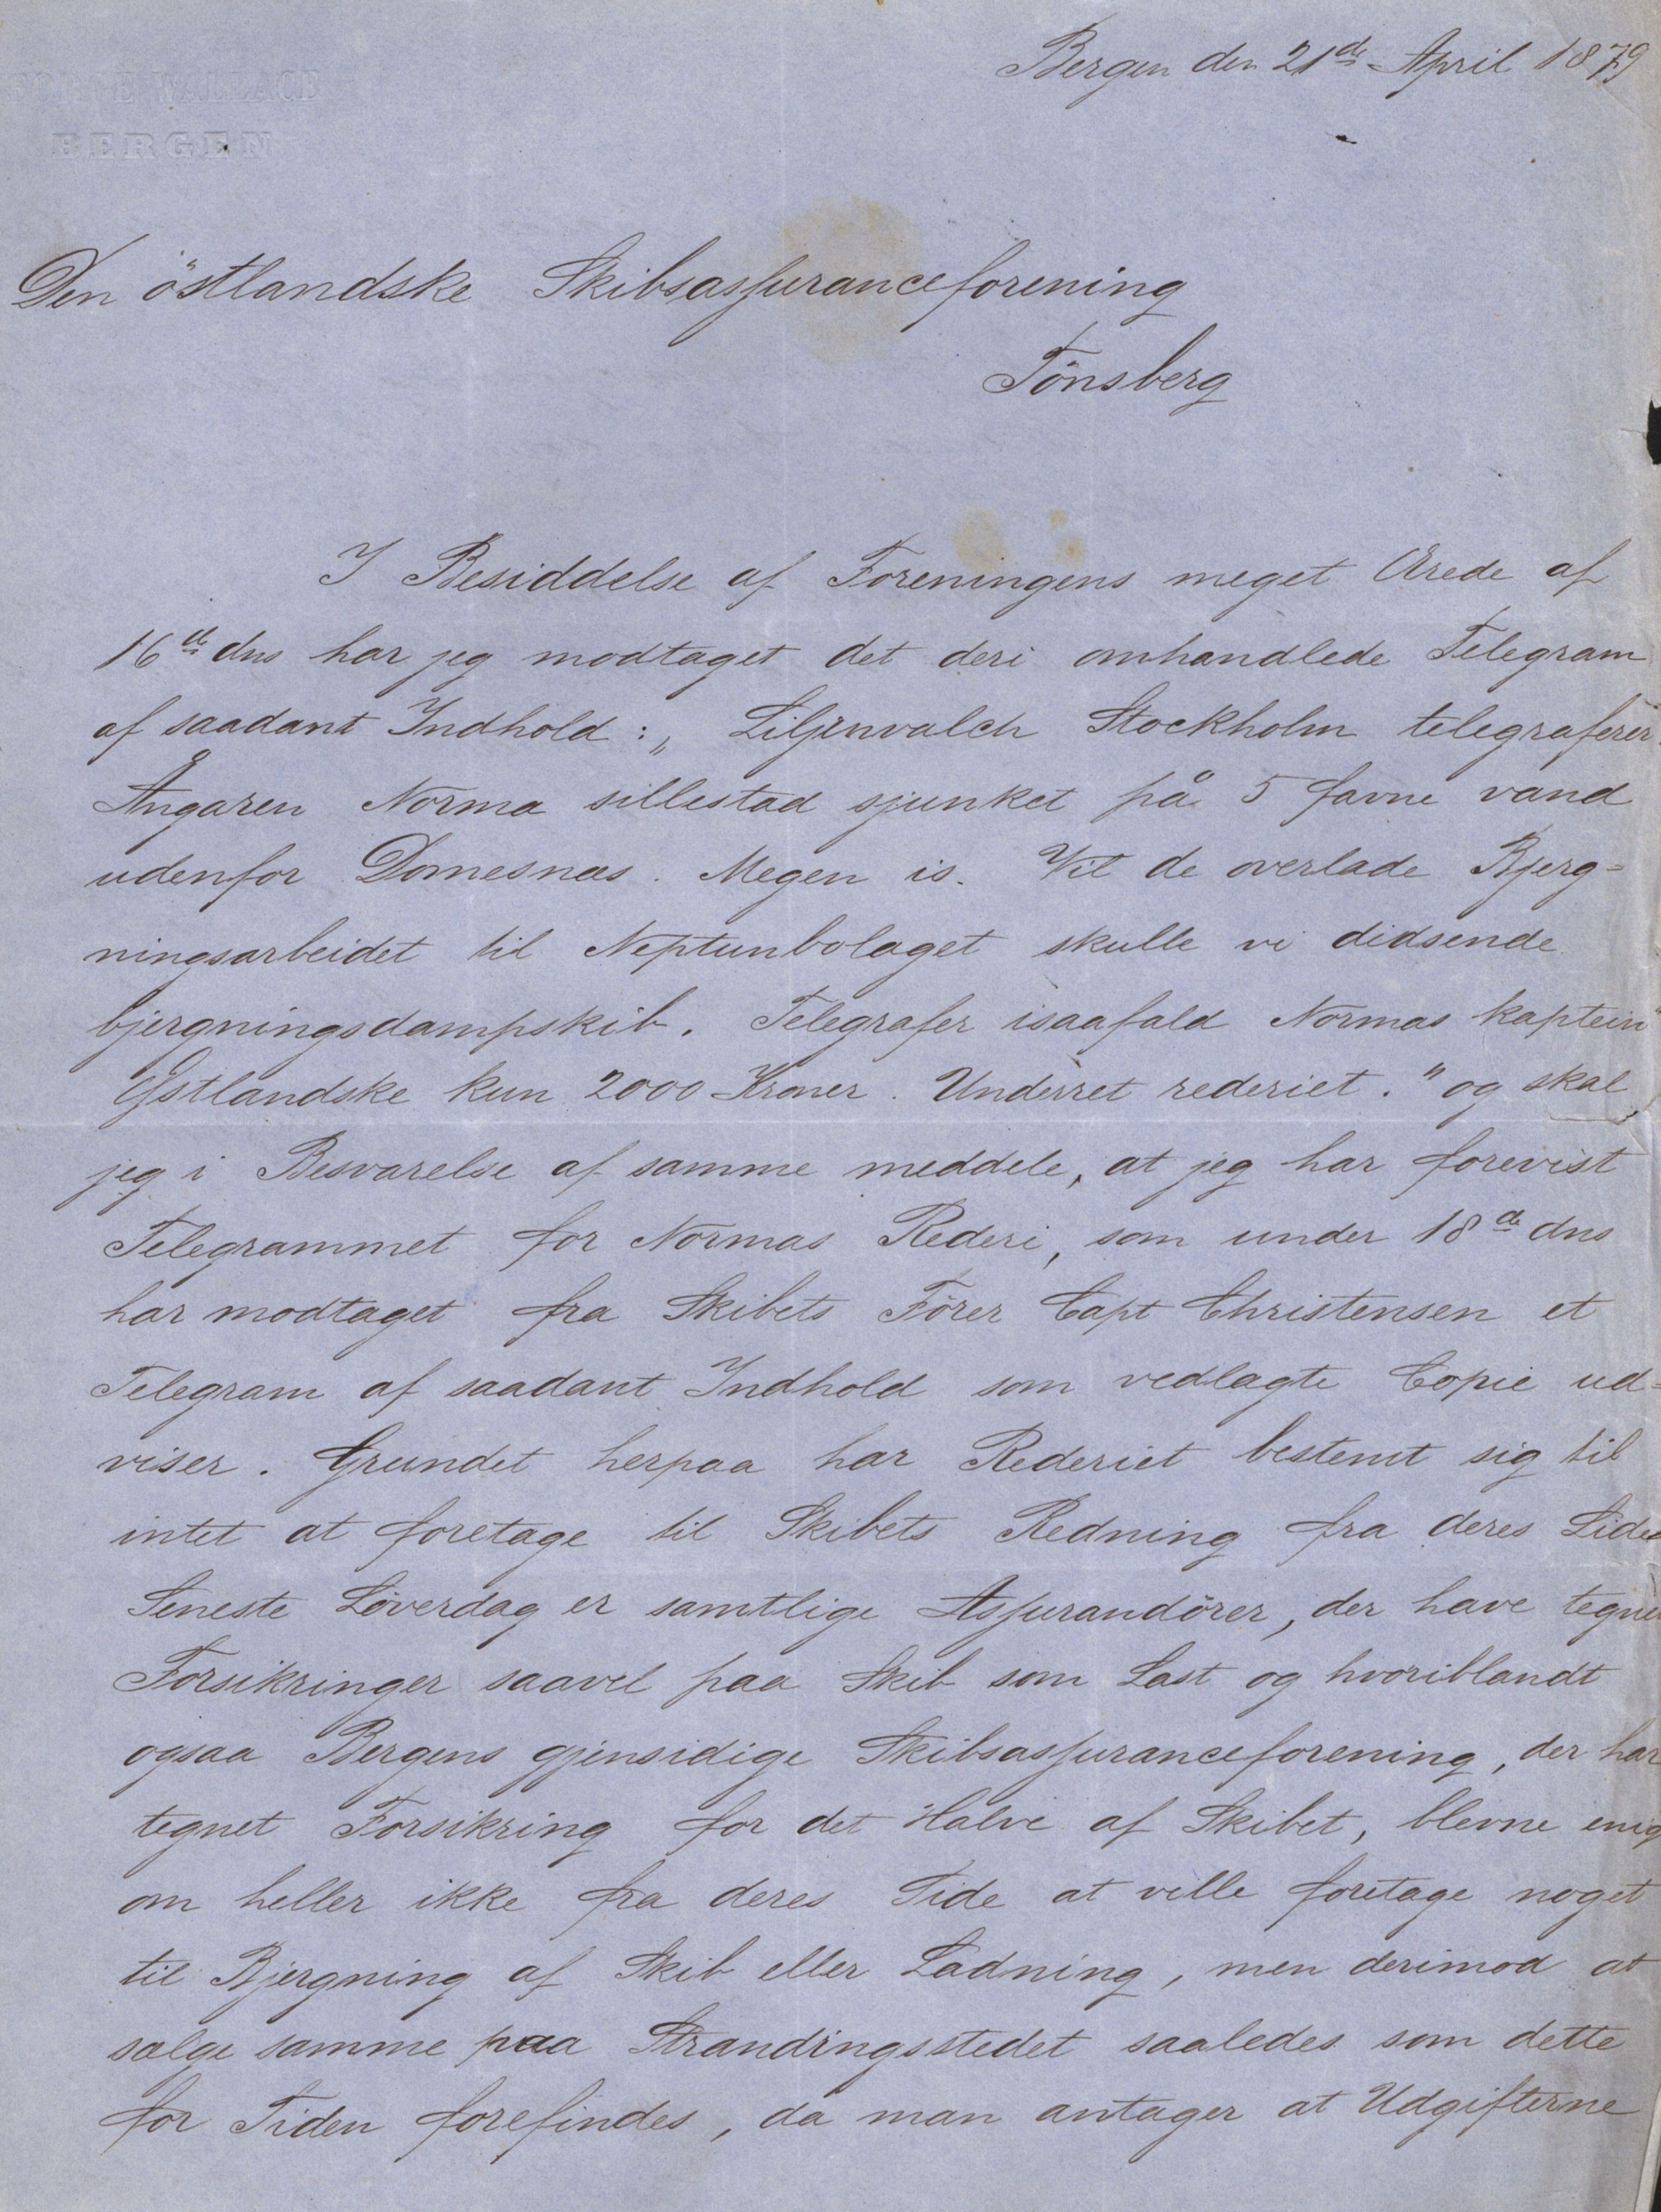 Bergen den 21de April 1879
WALLACE
BERGEN
Den östlandske Skibsassuranceforening
Tönsberg
I Besiddelse af Foreningens meget Ærede af
16de dns har jeg modtaget det deri omhandlede Telegram
af saadant Indhold: „Liljewalch Stockholm telegraferer
Ångaren Norma sillestad sjunket på 5 favne vand
udenfor Domesnæs. Megen is. Vil de overlade Bjerg=
ningsarbeidet til Neptunbolaget skulle vi didsende
bjergningsdampskib. Telegrafer isaafald Normas kaptein
Östlandske kun 2000 Kroner. Underret rederiet." og skal
jeg i Besvarelse af samme meddele, at jeg har forevist
Telegrammet for Normas Rederi, som under 18de dns
har modtaget fra Skibets Förer Capt Christensen et
Telegram af saadant Indhold som vedlagte Copie ud=
viser. Grundet herpaa har Rederiet bestemt sig til
intet at foretage til Skibets Redning fra deres Side
Seneste Löverdag er samtlige Assurandörer, der have tegnet
Forsikringer saavel paa Skib som Last og hvoriblandt
ogsaa Bergens gjensidige Skibsassuranceforening, der har
tegnet Forsikring for det Halve af Skibet, blevne enig
om heller ikke fra deres Side at ville foretage noget
til Bjergning af Skib eller Ladning, men derimod at
sælge samme paa Strandingsstedet saaledes som dette
for Tiden forefindes, da man antager at Udgifterne